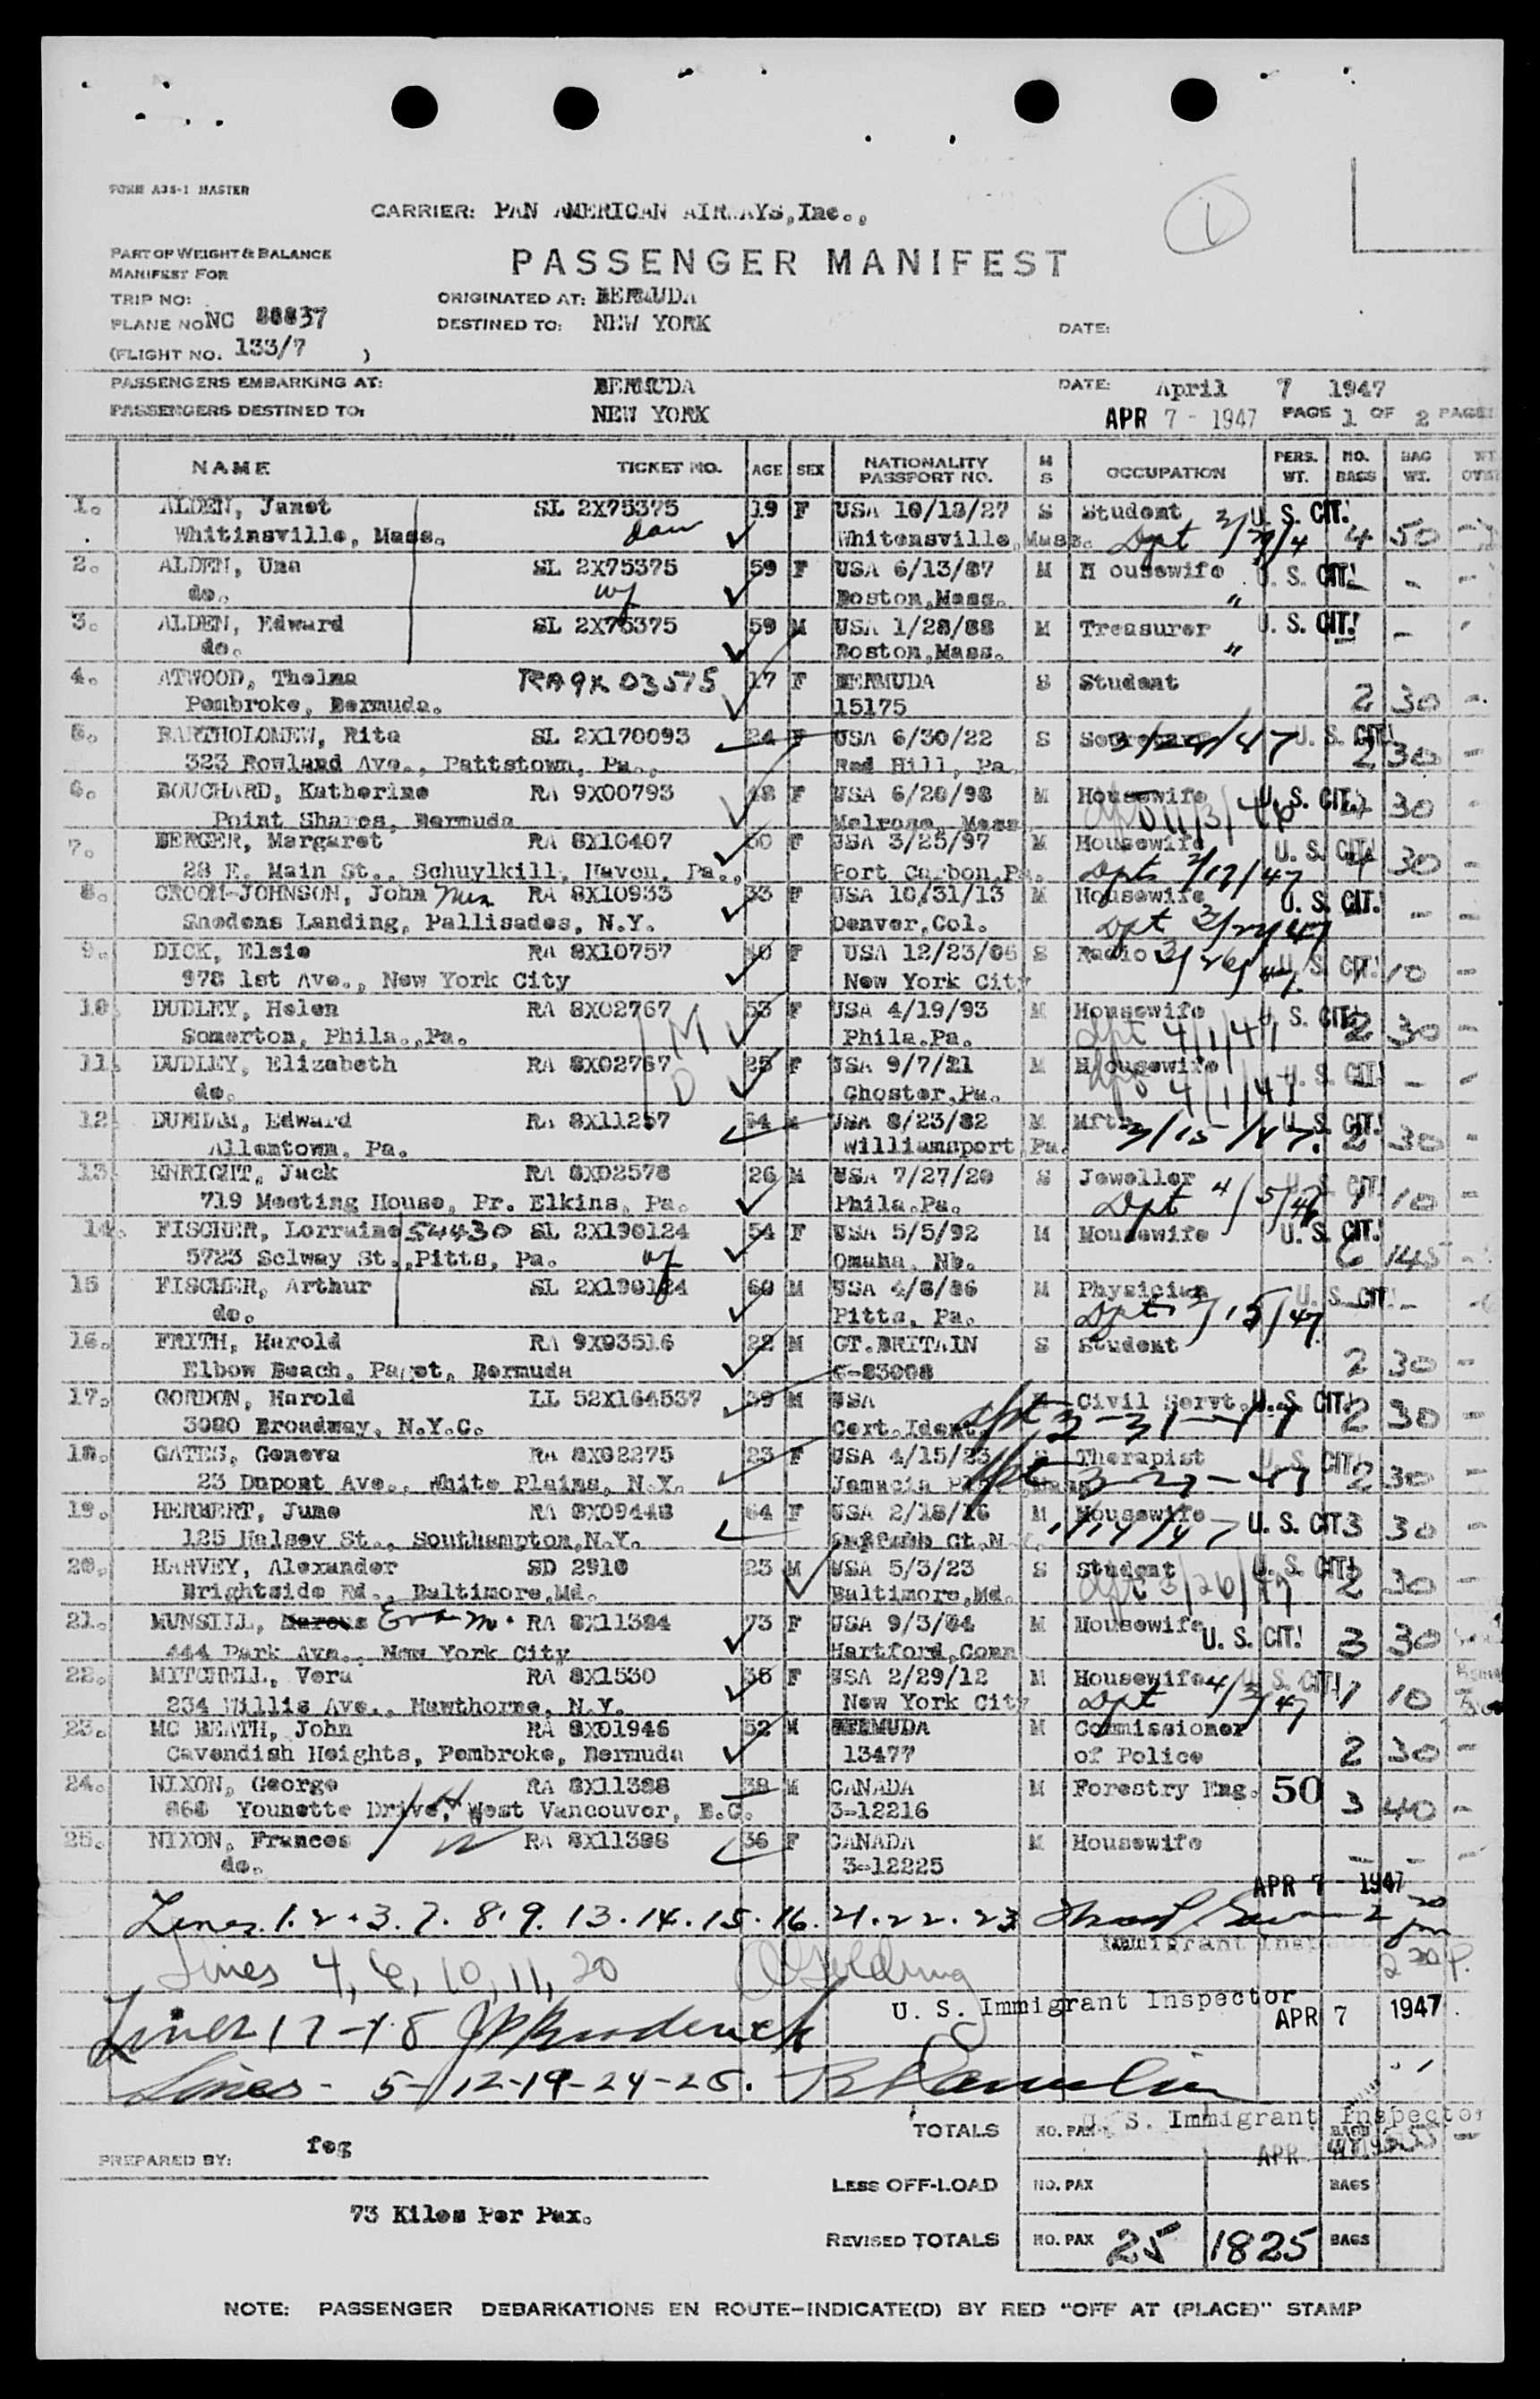 FORM A35-1 MASTER
CARRIER: PAN AMERICAN AIRWAYS, Inc.,
1
PASSENGER MANIFEST
PART OF WEIGHT & BALANCE
MANIFEST FOR
TRIP NO:
PLANE NO NC 88837
(FLIGHT NO. 133/7 )
ORIGINATED AT: BERMUDA
DESTINED TO: NEW YORK
DATE:
PASSENGERS EMBARKING AT: BERMUDA DATE: April 7 1947
PASSENGERS DESTINED TO: NEW YORK APR 7 - 1947 PAGE 1 OF 2 PAGES
NAME TICKET NO. AGE SEX NATIONALITY PASSPORT NO. M S OCCUPATION PERS. WT. NO. BAGS BAG WT.
1. ALDEN, Janet SL 2X75375 19 F USA 10/13/27 S Student U. S. CIT.
Whitinsville, Mass. dau Whitensville, Mass. Dpt 4 50 -
2. ALDEN, Una SL 2X75375 59 F USA 6/13/87 M Housewife U. S. CIT. - - -
do. wf Boston, Mass. "
3. ALDEN, Edward SL 2X75375 59 M USA 1/28/88 M Treasurer U. S. CIT! -
do. Boston, Mass. "
4. ATWOOD, Thelma RA9X03575 17 F BERMUDA S Student
Pembroke, Bermuda. 15175 2 30 -
5. BARTHOLOMEW, Rita SL 2X170093 24 F USA 6/30/22 S U. S. CIT!
323 Rowland Ave., Pattstown, Pa., Red Hill, Pa. 2 30 -
6. BOUCHARD, Katherine RA 9X00793 48 F USA 6/20/98 M Housewife U. S. CIT. 30
Point Shares, Bermuda Melrose, Mass
7. BERGER, Margaret RA 8X10407 50 F USA 3/25/97 M Housewife U. S. CIT! 30 -
28 E. Main St., Schuylkill, Haven, Pa., Port Carbon, Pa. Dpt 2/17/47
8. CROOM-JOHNSON, John Mrs RA 8X10933 33 F USA 10/31/13 M Housewife U. S. CIT. - -
Snedens Landing, Pallisades, N.Y. Denver, Col. Dpt 3/22/47
9. DICK, Elsie RA 8X10757 40 F USA 12/23/06 S Radio 3/26/47 U. S. CIT! 1 10 -
978 1st Ave., New York City New York City
10. DUDLEY, Helen RA 8X02767 M 53 F USA 4/19/93 M Housewife U. S. CIT! 2 30 -
Somerton, Phila., Pa. Phila. Pa. dpt 4/1/47
11. DUDLEY, Elizabeth RA 8X02767 D 25 F USA 9/7/21 M Housewife U. S. CIT! - -
do. Chester, Pa. dpt 4/1/47
12. DURHAM, Edward RA 8X11257 64 M USA 8/23/82 M Mftr. U. S. CIT! 2 30 -
Allentown, Pa. Williamsport Pa. 3/15/47.
13. ENRIGHT, Jack RA 8X02578 26 M USA 7/27/20 S Jeweller U. S. CIT! 1 10 -
719 Meeting House, Pr. Elkins, Pa. Phila. Pa. Dpt 4/5/46
14. FISCHER, Lorraine 54430 SL 2X190124 54 F USA 5/5/92 M Housewife U. S. CIT.
5723 Solway St., Pitts, Pa. wf Omaha, Nb. 6 145
15 FISCHER, Arthur SL 2X190124 60 M USA 4/8/86 M Physician U. S. CIT! - -
do. Pitts, Pa. Dpt 3/15/47.
16. FRITH, Harold RA 9X03516 22 M GT. BRITAIN S Student
Elbow Beach, Paget, Bermuda C-83008 2 30 -
17. GORDON, Harold LL 52X164537 39 M USA Civil Servt. U. S. CIT! 2 30 -
3080 Broadway, N.Y.C. Cert. Ident. dpt 3-31-47
18. GATES, Geneva RA 8X02275 23 F USA 4/15/23 S Therapist U. S. CIT! 2 30 -
23 Dupont Ave., White Plains, N.Y. Jamacia dpt 3-27-47
19. HERBERT, June RA 8X09448 64 F USA 2/18/16 M Housewife U. S. CIT 3 30 -
125 Halsey St., Southampton, N.Y. Suffolk Ct. N.Y. 1/14/47
20. HARVEY, Alexander SD 2910 23 M USA 5/3/23 S Student U. S. CIT! 2 30 -
Brightside Rd., Baltimore, Md. Baltimore, Md. dpt 3/26/47
21. MUNSILL, Marcus Eva M. RA 8X11384 73 F USA 9/3/84 M Housewife U. S. CIT! 3 30
444 Park Ave., New York City Hartford, Conn
22. MITCHELL, Vera RA 8X1530 36 F USA 2/29/12 M Housewife U. S. CIT! 1 10
234 Willis Ave., Hawthorne, N.Y. New York City Dpt 4/3/47
23. MC BEATH, John RA 8X01946 52 M BERMUDA M Commissioner
Cavendish Heights, Pembroke, Bermuda 13477 of Police 2 30 -
24. NIXON, George RA 8X11388 38 M CANADA M Forestry Eng. 50 3 40 -
868 Younette Drive, West Vancouver, B.C. H 3-12216
25. NIXON, Frances W RA 8X11386 36 F CANADA M Housewife - - -
do. 3-12225
APR 7 - 1947
Lines. 1. 2. 3. 7. 8. 9. 13. 14. 15. 16. 21. 22. 23
Immigrant Inspector
Lines 4, 6, 10, 11, 20 Golding 2 30 P.
U. S. Immigrant Inspector APR 7 1947
Lines 17-18 JP Broderick
Lines - 5-12-19-24-25.
U. S. Immigrant Inspector
APR
TOTALS NO. PAX BAGS
PREPARED BY: feg
LESS OFF-LOAD NO. PAX BAGS
73 Kilos Per Pax.
REVISED TOTALS NO. PAX 25 1825 BAGS
NOTE: PASSENGER DEBARKATIONS EN ROUTE-INDICATE(D) BY RED "OFF AT (PLACE)" STAMP